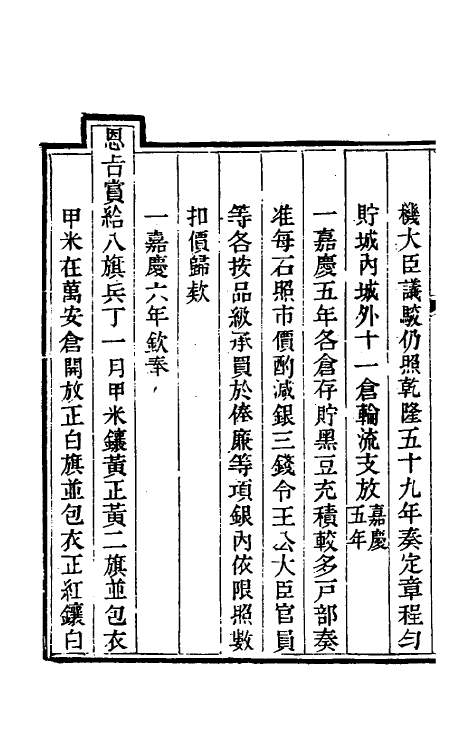 機大臣議駁仍照乾隆五十九年奏定章程勻
貯城內城外十一倉輪流支放嘉慶五年
一嘉慶五年各倉存貯黑豆充積較多戶部奏
准每石照市價酌減銀三錢令王公大臣官員
等各按品級承買於俸廉等項銀內依限照數
扣價歸欵
一嘉慶六年欽奉
恩旨賞給八旗兵丁一月甲米鑲黃正黃二旗並包衣
甲米在萬安倉開放正白旗並包衣正紅鑲白